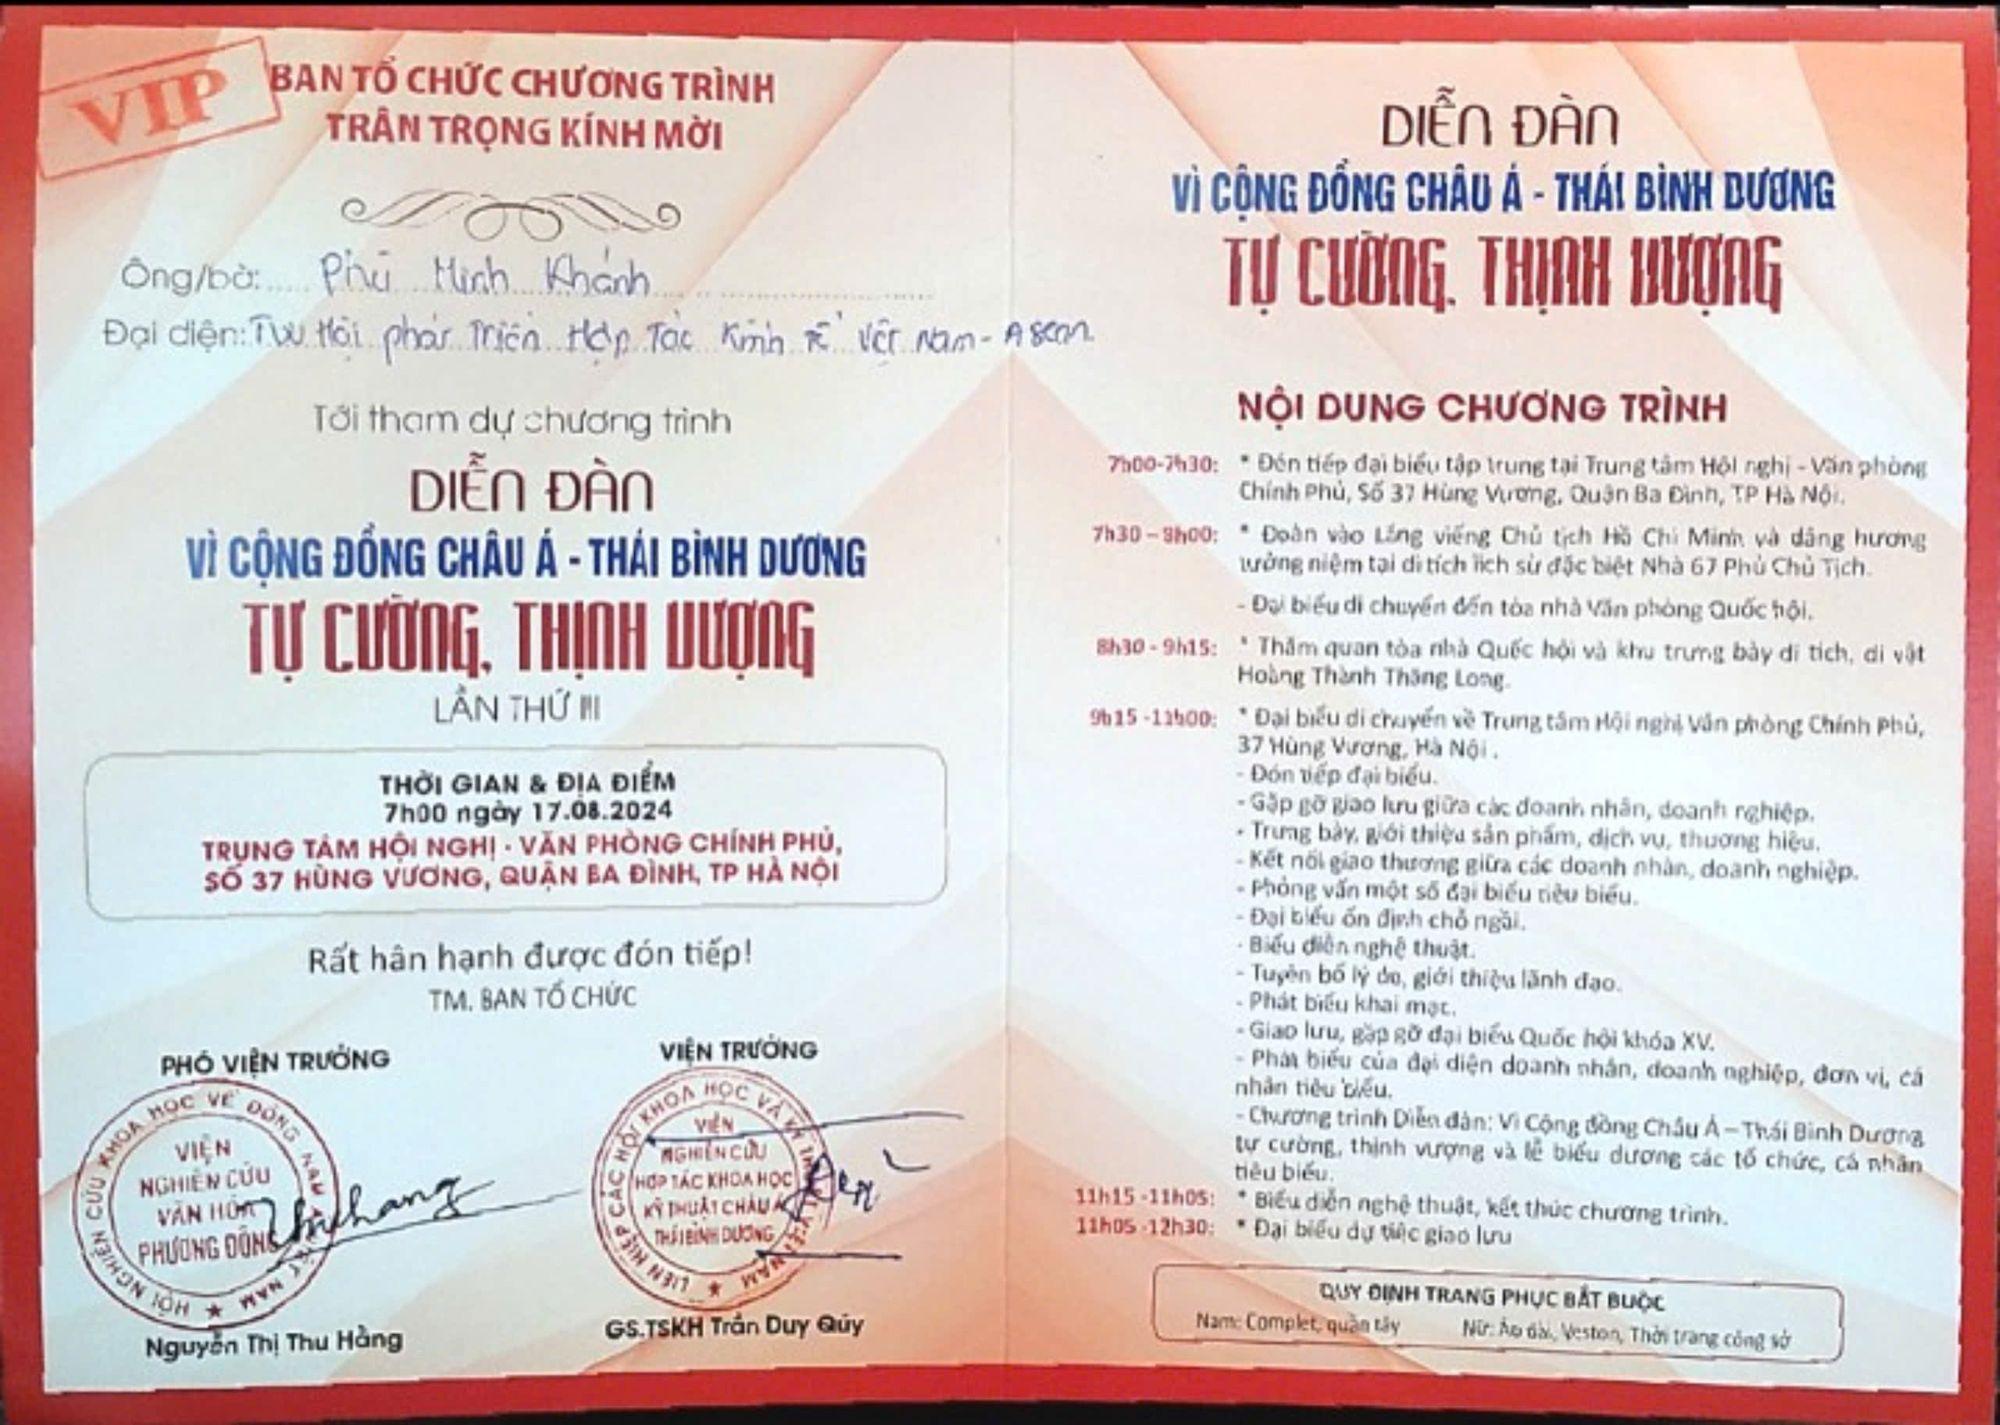 VIP
BAN TỔ CHỨC CHƯƠNG TRÌNH
TRÂN TRỌNG KÍNH MỜI
Ông/bà: Phú Minh Khánh
Đại diện: TW Hội phát Triển Hợp Tác Kinh Tế Việt Nam - Asean
Tới tham dự chương trình
DIỄN ĐÀN
VÌ CỘNG ĐỒNG CHÂU Á - THÁI BÌNH DƯƠNG
TỰ CƯỜNG, THỊNH VƯỢNG
LẦN THỨ III
THỜI GIAN & ĐỊA ĐIỂM
7h00 ngày 17.08.2024
TRUNG TÂM HỘI NGHỊ - VĂN PHÒNG CHÍNH PHỦ,
SỐ 37 HÙNG VƯƠNG, QUẬN BA ĐÌNH, TP HÀ NỘI
Rất hân hạnh được đón tiếp!
TM. BAN TỔ CHỨC
PHÓ VIỆN TRƯỞNG
HỘI NGHIÊN CỨU KHOA HỌC VỀ ĐÔNG NAM Á VIỆT NAM
VIỆN
NGHIÊN CỨU
VĂN HÓA
PHƯƠNG ĐÔNG
Nguyễn Thị Thu Hằng
VIỆN TRƯỞNG
LIÊN HIỆP CÁC HỘI KHOA HỌC VÀ KỸ THUẬT VIỆT NAM
VIỆN
NGHIÊN CỨU
HỢP TÁC KHOA HỌC
KỸ THUẬT CHÂU Á
THÁI BÌNH DƯƠNG
GS.TSKH Trần Duy Qúy
DIỄN ĐÀN
VÌ CỘNG ĐỒNG CHÂU Á - THÁI BÌNH DƯƠNG
TỰ CƯỜNG, THỊNH VƯỢNG
NỘI DUNG CHƯƠNG TRÌNH
7h00-7h30: * Đón tiếp đại biểu tập trung tại Trung tâm Hội nghị - Văn phòng
Chính Phủ, Số 37 Hùng Vương, Quận Ba Đình, TP Hà Nội.
7h30 - 8h00: * Đoàn vào Lăng viếng Chủ tịch Hồ Chí Minh và dâng hương
tưởng niệm tại di tích lịch sử đặc biệt Nhà 67 Phủ Chủ Tịch.
- Đại biểu di chuyển đến tòa nhà Văn phòng Quốc hội.
8h30 - 9h15: * Thăm quan tòa nhà Quốc hội và khu trưng bày di tích, di vật
Hoàng Thành Thăng Long.
9h15 -11h00: * Đại biểu di chuyển về Trung tâm Hội nghị Văn phòng Chính Phủ,
37 Hùng Vương, Hà Nội .
- Đón tiếp đại biểu.
- Gặp gỡ giao lưu giữa các doanh nhân, doanh nghiệp.
- Trưng bày, giới thiệu sản phẩm, dịch vụ, thương hiệu.
- Kết nối giao thương giữa các doanh nhân, doanh nghiệp.
- Phỏng vấn một số đại biểu tiêu biểu.
- Đại biểu ổn định chỗ ngồi.
- Biểu diễn nghệ thuật.
- Tuyên bố lý do, giới thiệu lãnh đạo.
- Phát biểu khai mạc.
- Giao lưu, gặp gỡ đại biểu Quốc hội khóa XV.
- Phát biểu của đại diện doanh nhân, doanh nghiệp, đơn vị, cá
nhân tiêu biểu.
- Chương trình Diễn đàn: Vì Cộng đồng Châu Á - Thái Bình Dương
tự cường, thịnh vượng và lễ biểu dương các tổ chức, cá nhân
tiêu biểu.
11h15 -11h05: * Biểu diễn nghệ thuật, kết thúc chương trình.
11h05 -12h30: * Đại biểu dự tiệc giao lưu
QUY ĐỊNH TRANG PHỤC BẮT BUỘC
Nam: Complet, quần tây Nữ: Áo dài, Veston, Thời trang công sở